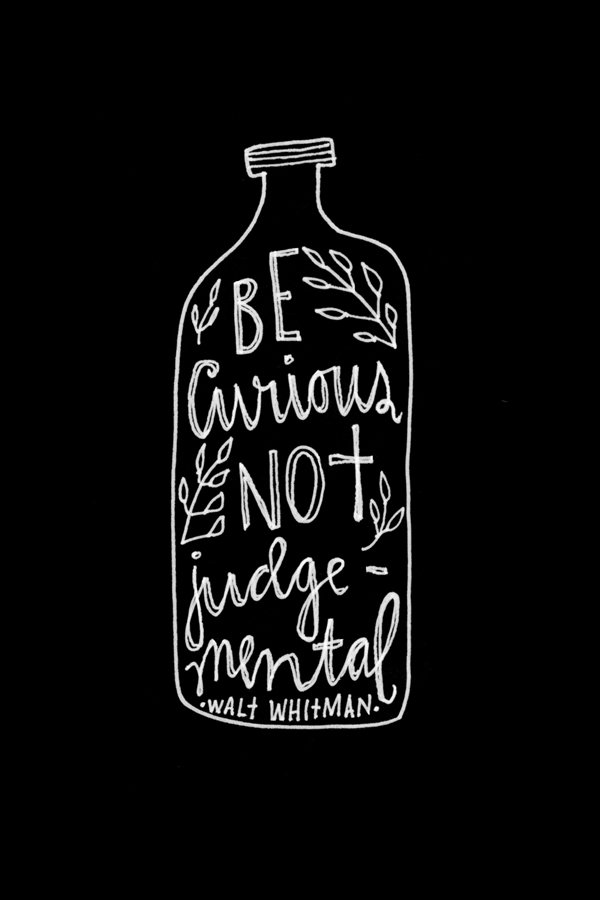 BE
Curious
NOt
judge-
mental
·WALt WHItMAN·